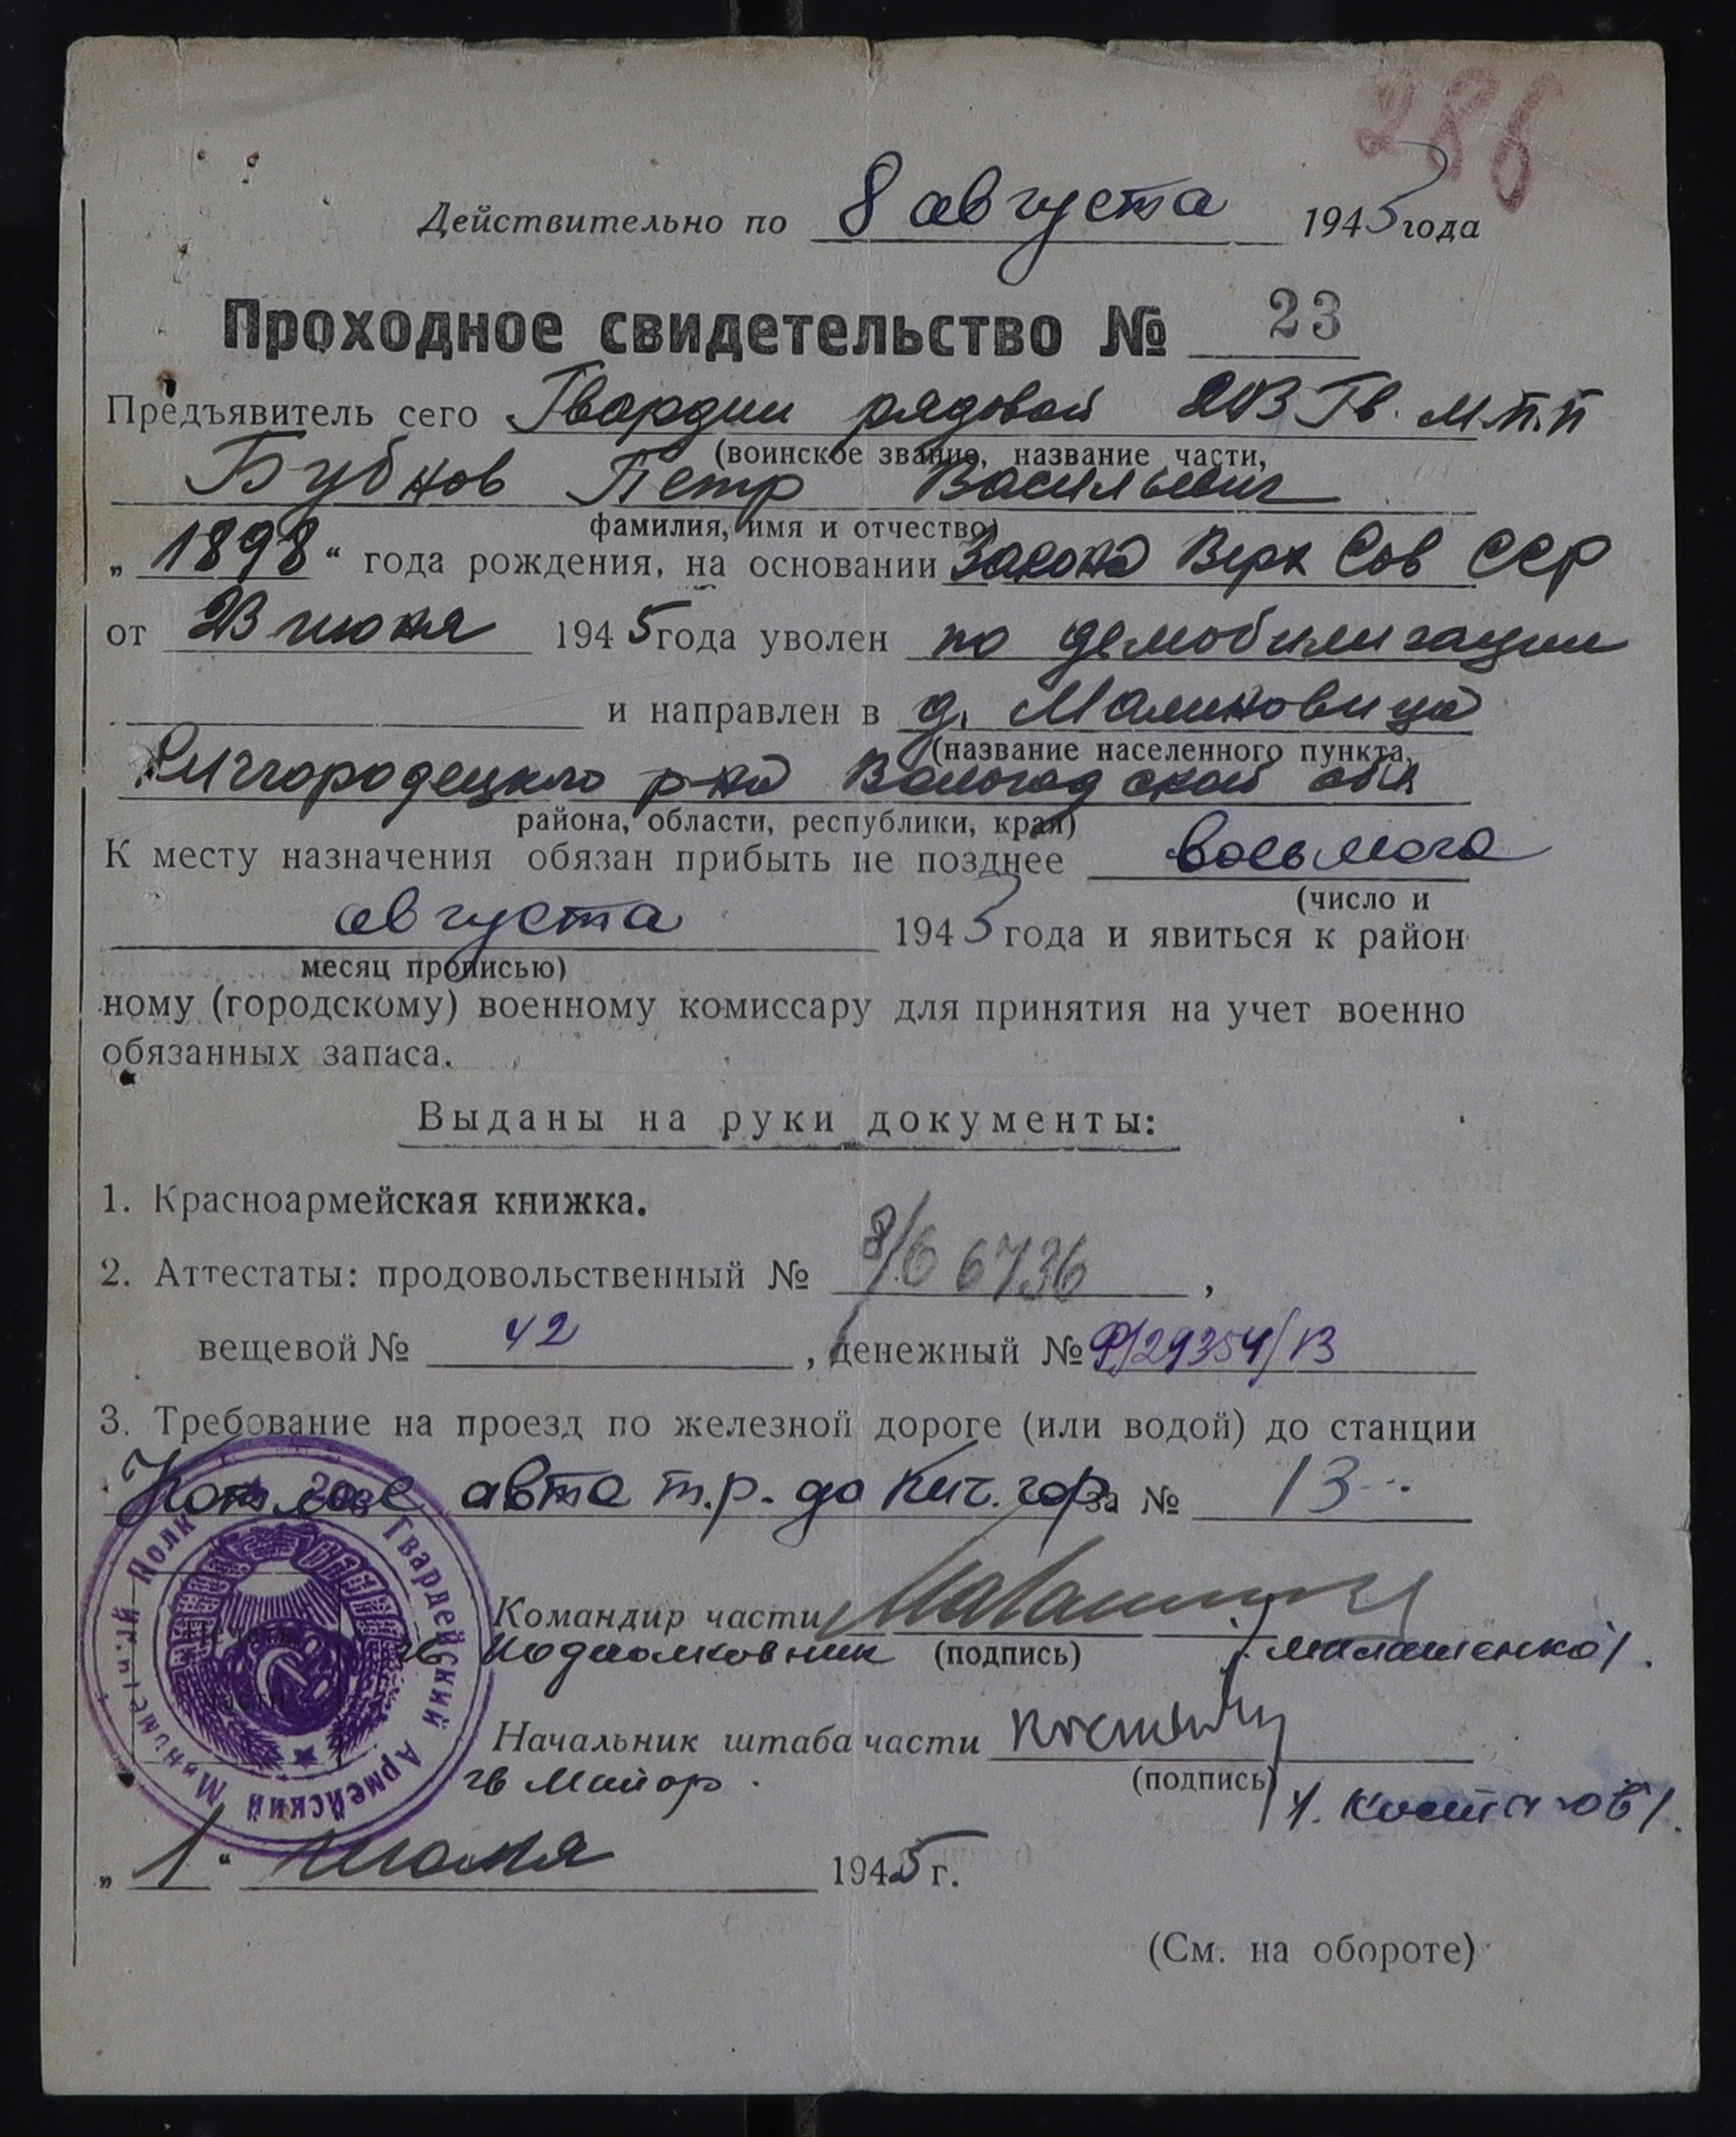 286
Действительно по 8 августа 1945 года
Проходное свидетельство № 23
Предъявитель сего Гвардии рядовой 203 Гв. м.п.п
(воинское звание, название части,
Бубнов Петр Васильевич
фамилия, имя и отчество)
„1898“ года рождения, на основании Закона Верх Сов ССР
от 23 июня 1945 года уволен по демобилизации
и направлен в д. Малиновица
(название населенного пункта,
Кичгородецкого р-на Вологодской обл
района, области, республики, края)
К месту назначения обязан прибыть не позднее восьмого
(число и
августа 1945 года и явиться к район
месяц прописью)
ному (городскому) военному комиссару для принятия на учет военно
обязанных запаса.
Выданы на руки документы:
1. Красноармейская книжка.
2. Аттестаты: продовольственный № 8/6 6736,
вещевой № 42, денежный № Ф/29354/13
3. Требование на проезд по железной дороге (или водой) до станции
Котлас авто т.р. до Кич. гор за № 13
203 Гвардейский Армейский Минометный Полк
Печать
части
Командир части
гв Подполковник (подпись) /Малашенко/.
Начальник штаба части
гв Майор. (подпись) /Костиков/.
„1“ июля 1945 г.
(См. на обороте)